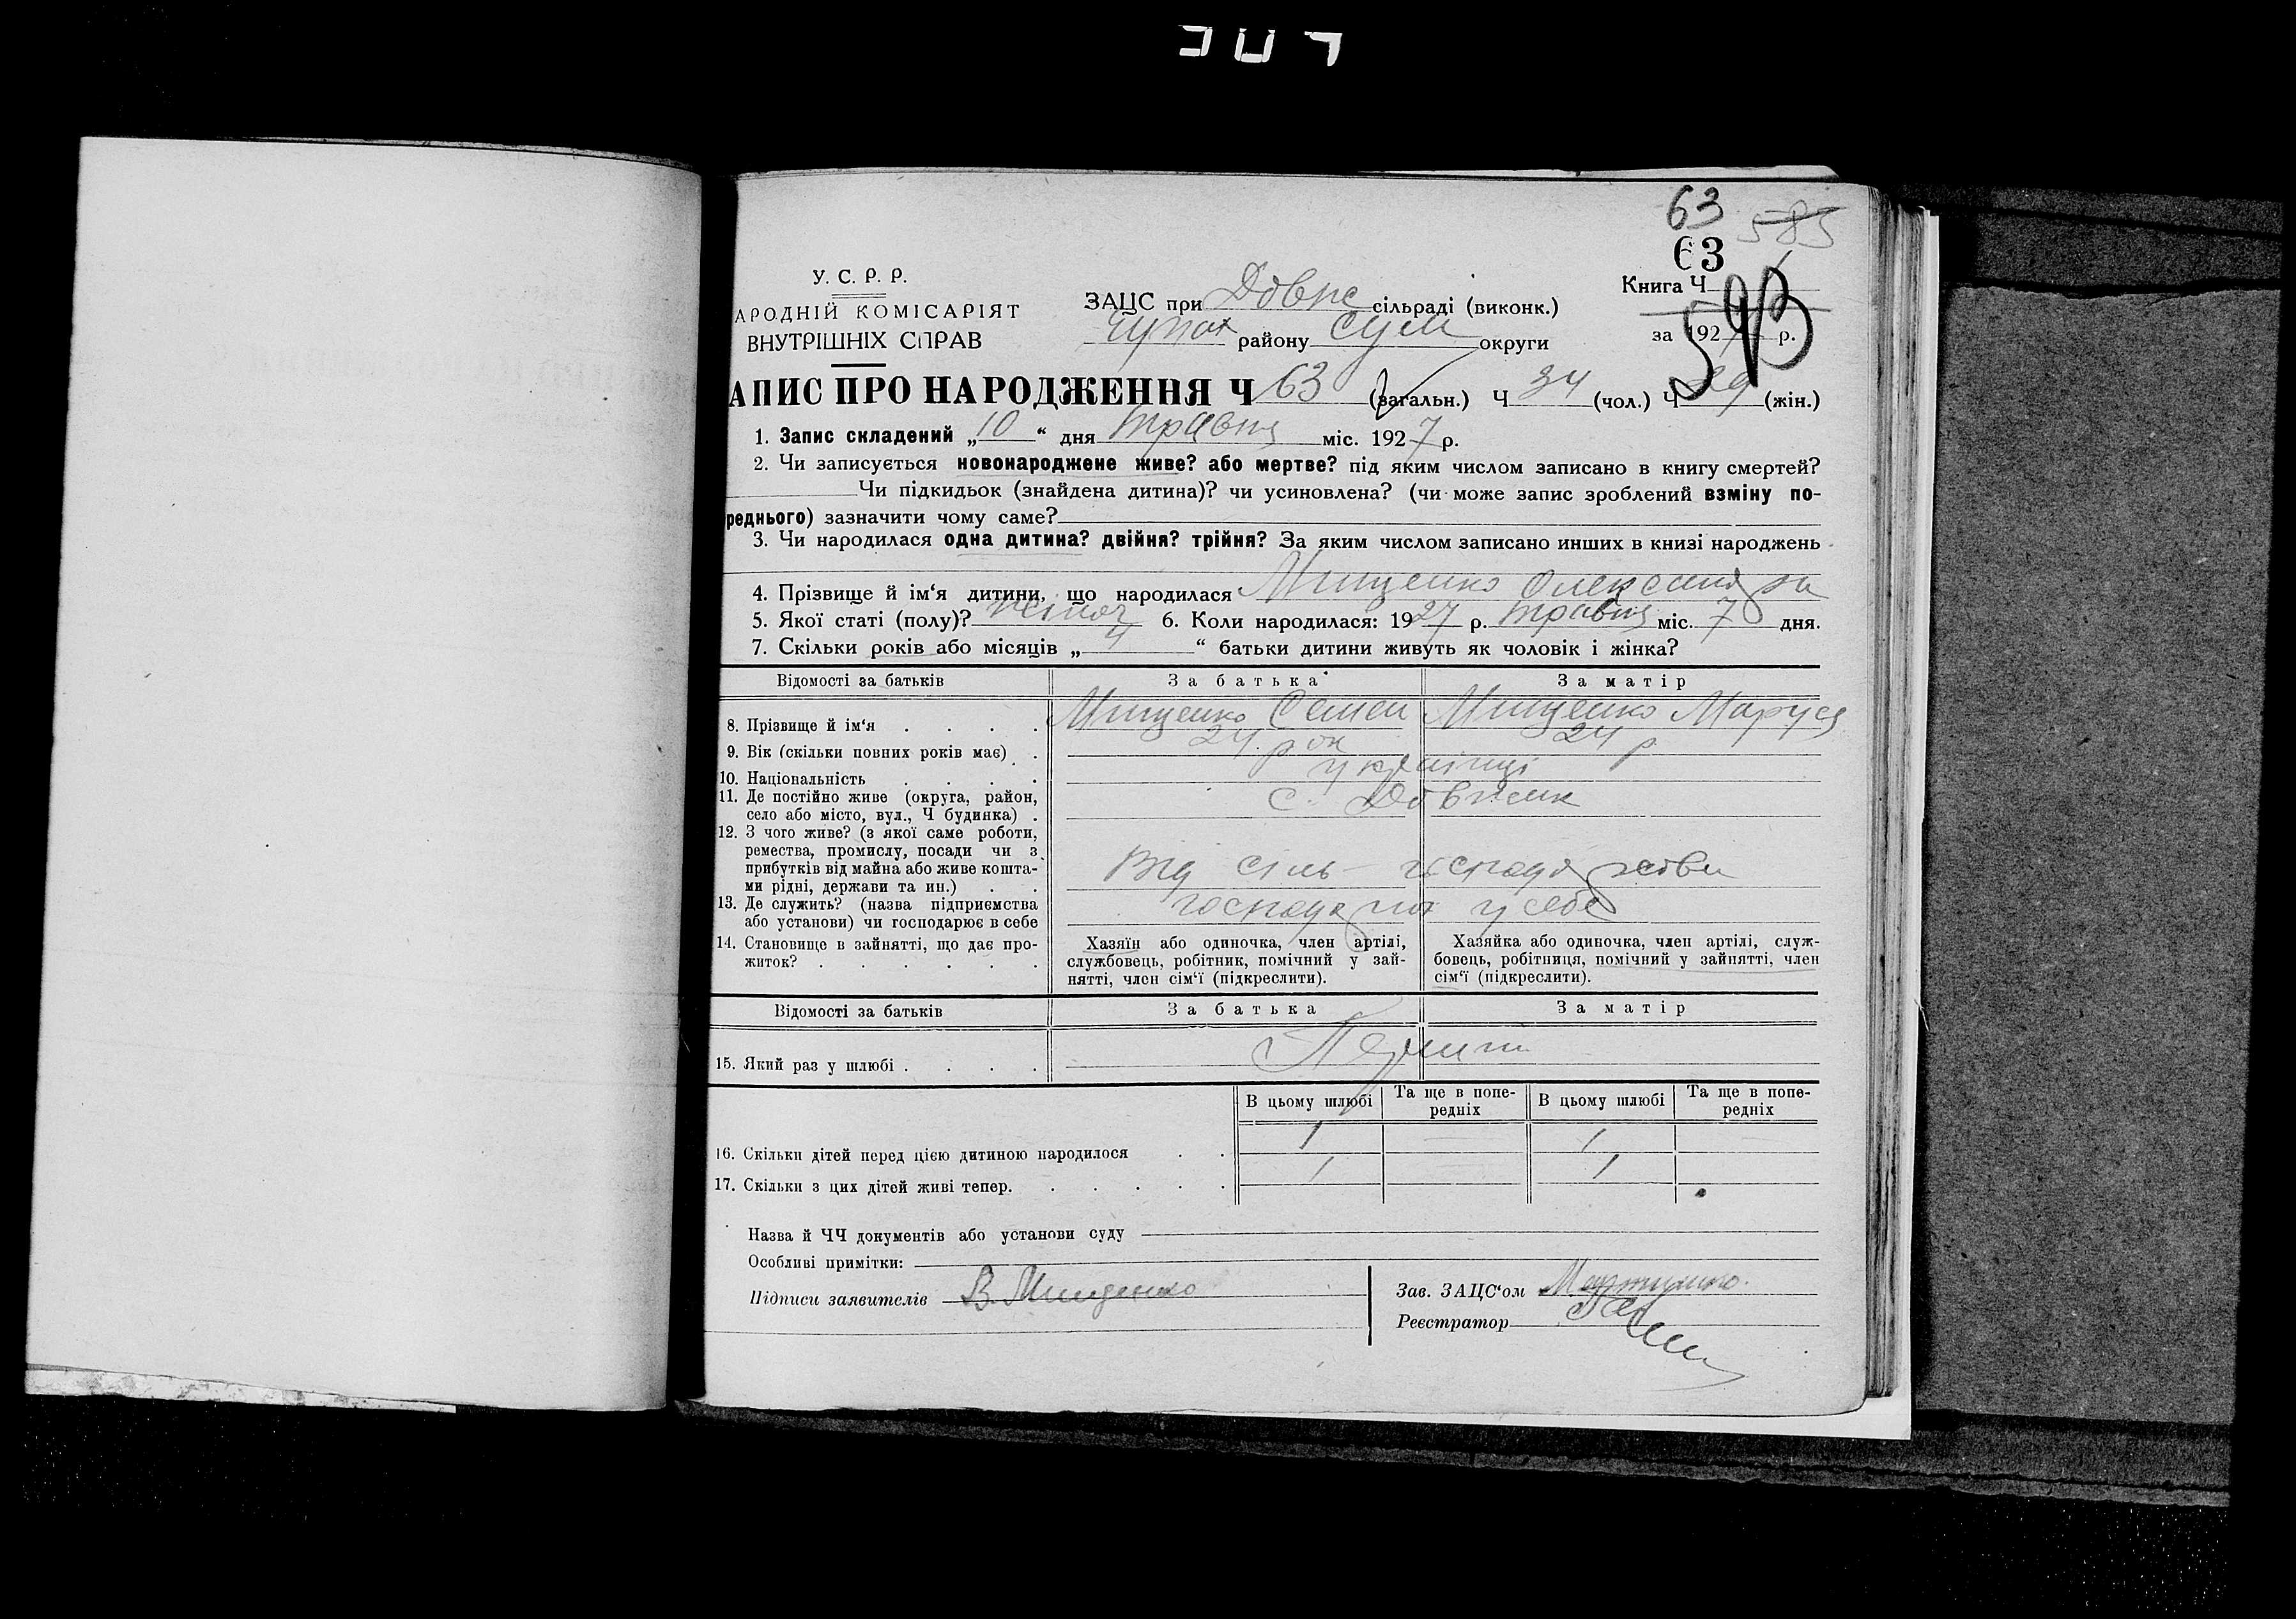 307
63 585
63
У. С. Р. Р.
АРОДНІЙ КОМІСАРІЯТ
ВНУТРІШНІХ СПРАВ
ЗАЦС при сільраді (виконк.)
району Сум округи
Книга Ч
593
за 1927 р.
АПИС ПРО НАРОДЖЕННЯ Ч 63 (загальн.) Ч 34 (чол.) Ч 29 (жін.)
1. Запис складений „10“ дня травня міс. 1927 р.
2. Чи записується новонароджене живе? або мертве? під яким числом записано в книгу смертей?
Чи підкидьок (знайдена дитина)? чи усиновлена? (чи може запис зроблений взміну по-
реднього) зазначити чому саме?
3. Чи народилася одна дитина? двійня? трійня? За яким числом записано инших в книзі народжень
4. Прізвище й ім‘я дитини, що народилася Мищенко Олександра
5. Якої статі (полу)? жіноч 6. Коли народилася: 1927 р. травня міс. 7 дня.
7. Скільки років або місяців „4“ батьки дитини живуть як чоловік і жінка?
Відомості за батьків За батька За матір
8. Прізвище й ім‘я . . . . Мищенко Семен Мищенко Маруся
9. Вік (скільки повних років має) . 24 рок 24 р
10. Національність . . . . українці
11. Де постійно живе (округа, район,
село або місто, вул., Ч будинка) . с.
12. З чого живе? (з якої саме роботи,
ремества, промислу, посади чи з
прибутків від майна або живе кошта-
ми рідні, держави та ин.) . . Від сіль-господарства
13. Де служить? (назва підприємства
або установи) чи господарює в себе у себе
14. Становище в зайнятті, що дає про-
житок? . . . . . .
Хазяїн або одиночка, член артілі,
службовець, робітник, помічний у зай-
нятті, член сім‘ї (підкреслити).
Хазяйка або одиночка, член артілі, служ-
бовець, робітниця, помічний у зайнятті, член
сім‘ї (підкреслити).
Відомості за батьків За батька За матір
15. Який раз у шлюбі . . . .
В цьому шлюбі Та ще в попе-
редніх В цьому шлюбі Та ще в попе-
редніх
16. Скільки дітей перед цією дитиною народилося . . 1 1
17. Скільки з цих дітей живі тепер. . . . . . 1 1
Назва й ЧЧ документів або установи суду
Особливі примітки:
Підписи заявителів В. Мищенко
Зав. ЗАЦС‘ом
Реєстратор